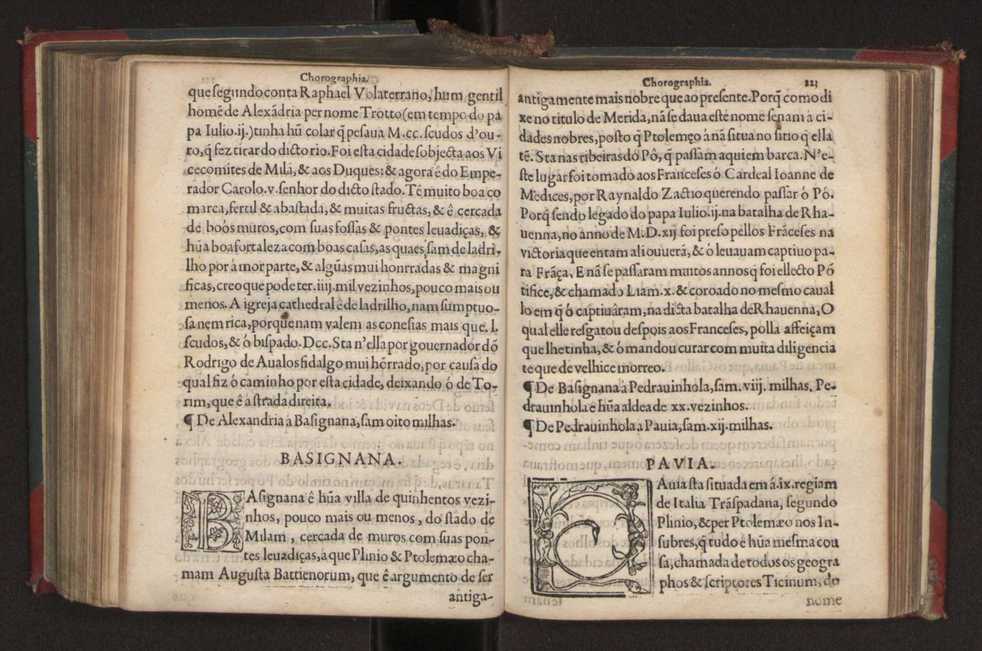 Chorographia.
que segundo conta Raphael Volaterrano, hum gentil
homẽ de Alexãdria per nome Trotto (em tempo do pa
pa Iulio.ij.) tinha hũ colar q̃ pesaua M.cc. scudos d'ou-
ro, q̃ fez tirar do dicto rio. Foi esta cidade sobjecta aos Vi
cecomites de Milã, & aos Duques: & agora é do Empe-
rador Carolo.v. senhor do dicto stado. Té muito boa co
marca, fertil & abastada, & muitas fructas, & ê cercada
de boõs muros, com suas fossas & pontes leuadiças, &
hũa boa fortaleza com boas casas, as quaes sam de ladri-
lho por â mor parte, & algũas mui honrradas & magni
ficas, creo que pode ter.iiij.mil vezinhos, pouco mais ou
menos. A igreja cathedral ê de ladrilho, nam sumptuo-
sa nem rica, porque nam valem as conesias mais que. l.
scudos, & ó bispado. Dcc. Sta n'ella por gouernador dõ
Rodrigo de Aualos fidalgo mui hõrrado, por causa do
qual fiz ó caminho por esta cidade, deixando ó de To-
rim, que ê a strada direita.
¶ De Alexandria â Basignana, sam oito milhas.
BASIGNANA.
BAsignana ê hũa villa de quinhentos vezi-
nhos, pouco mais ou menos, do stado de
Milam, cercada de muros com suas pon-
tes leuadiças, â que Plinio & Ptolemæo cha-
mam Augusta Battienorum, que ê argumento de ser
antiga-
Chorographia. 223
antigamente mais nobre que ao presente. Porq̃ como di
xe no titulo de Merida, nã se daua este nome senam â ci-
dades nobres, posto q̃ Ptolemęo â nã situa no sitio q̃ ella
tẽ. Sta nas ribeiras do Pô, q̃ passam aqui em barca. N'e-
ste lugar foi tomado aos Franceses ó Cardeal Ioanne de
Medices, por Raynaldo Zactio querendo passar ó Pô.
Porq̃ sendo legado do papa Iulio.ij. na batalha de Rha-
uenna, no anno de M.D.xij foi preso pellos Frãceses na
victoria que entam ali ouuerã, & ó leuauam captiuo pa-
ra Frãça. E nã se passaram muitos annos q̃ foi ellecto Põ
tifice, & chamado Liam.x. & coroado no mesmo caual
lo em q̃ ó captiuáram, na dicta batalha de Rhauenna, O
qual elle resgatou despois aos Franceses, polla affeiçam
que lhe tinha, & ó mandou curar com muita diligencia
te que de velhice morreo.
¶ De Basignana â Pedrauinhola, sam. viij. milhas. Pe-
drauinhola ê hũa aldea de xx. vezinhos.
¶ De Pedrauinhola a Pauia, sam.xij.milhas.
PAVIA.
PAuia sta situada em â.ix.regiam
de Italia Trãspadana, segundo
Plinio, & per Ptolemæo nos In-
subres, q̃ tudo ê hũa mesma cou
sa, chamada de todos os geogra
phos & scriptores Ticinum, do
nome